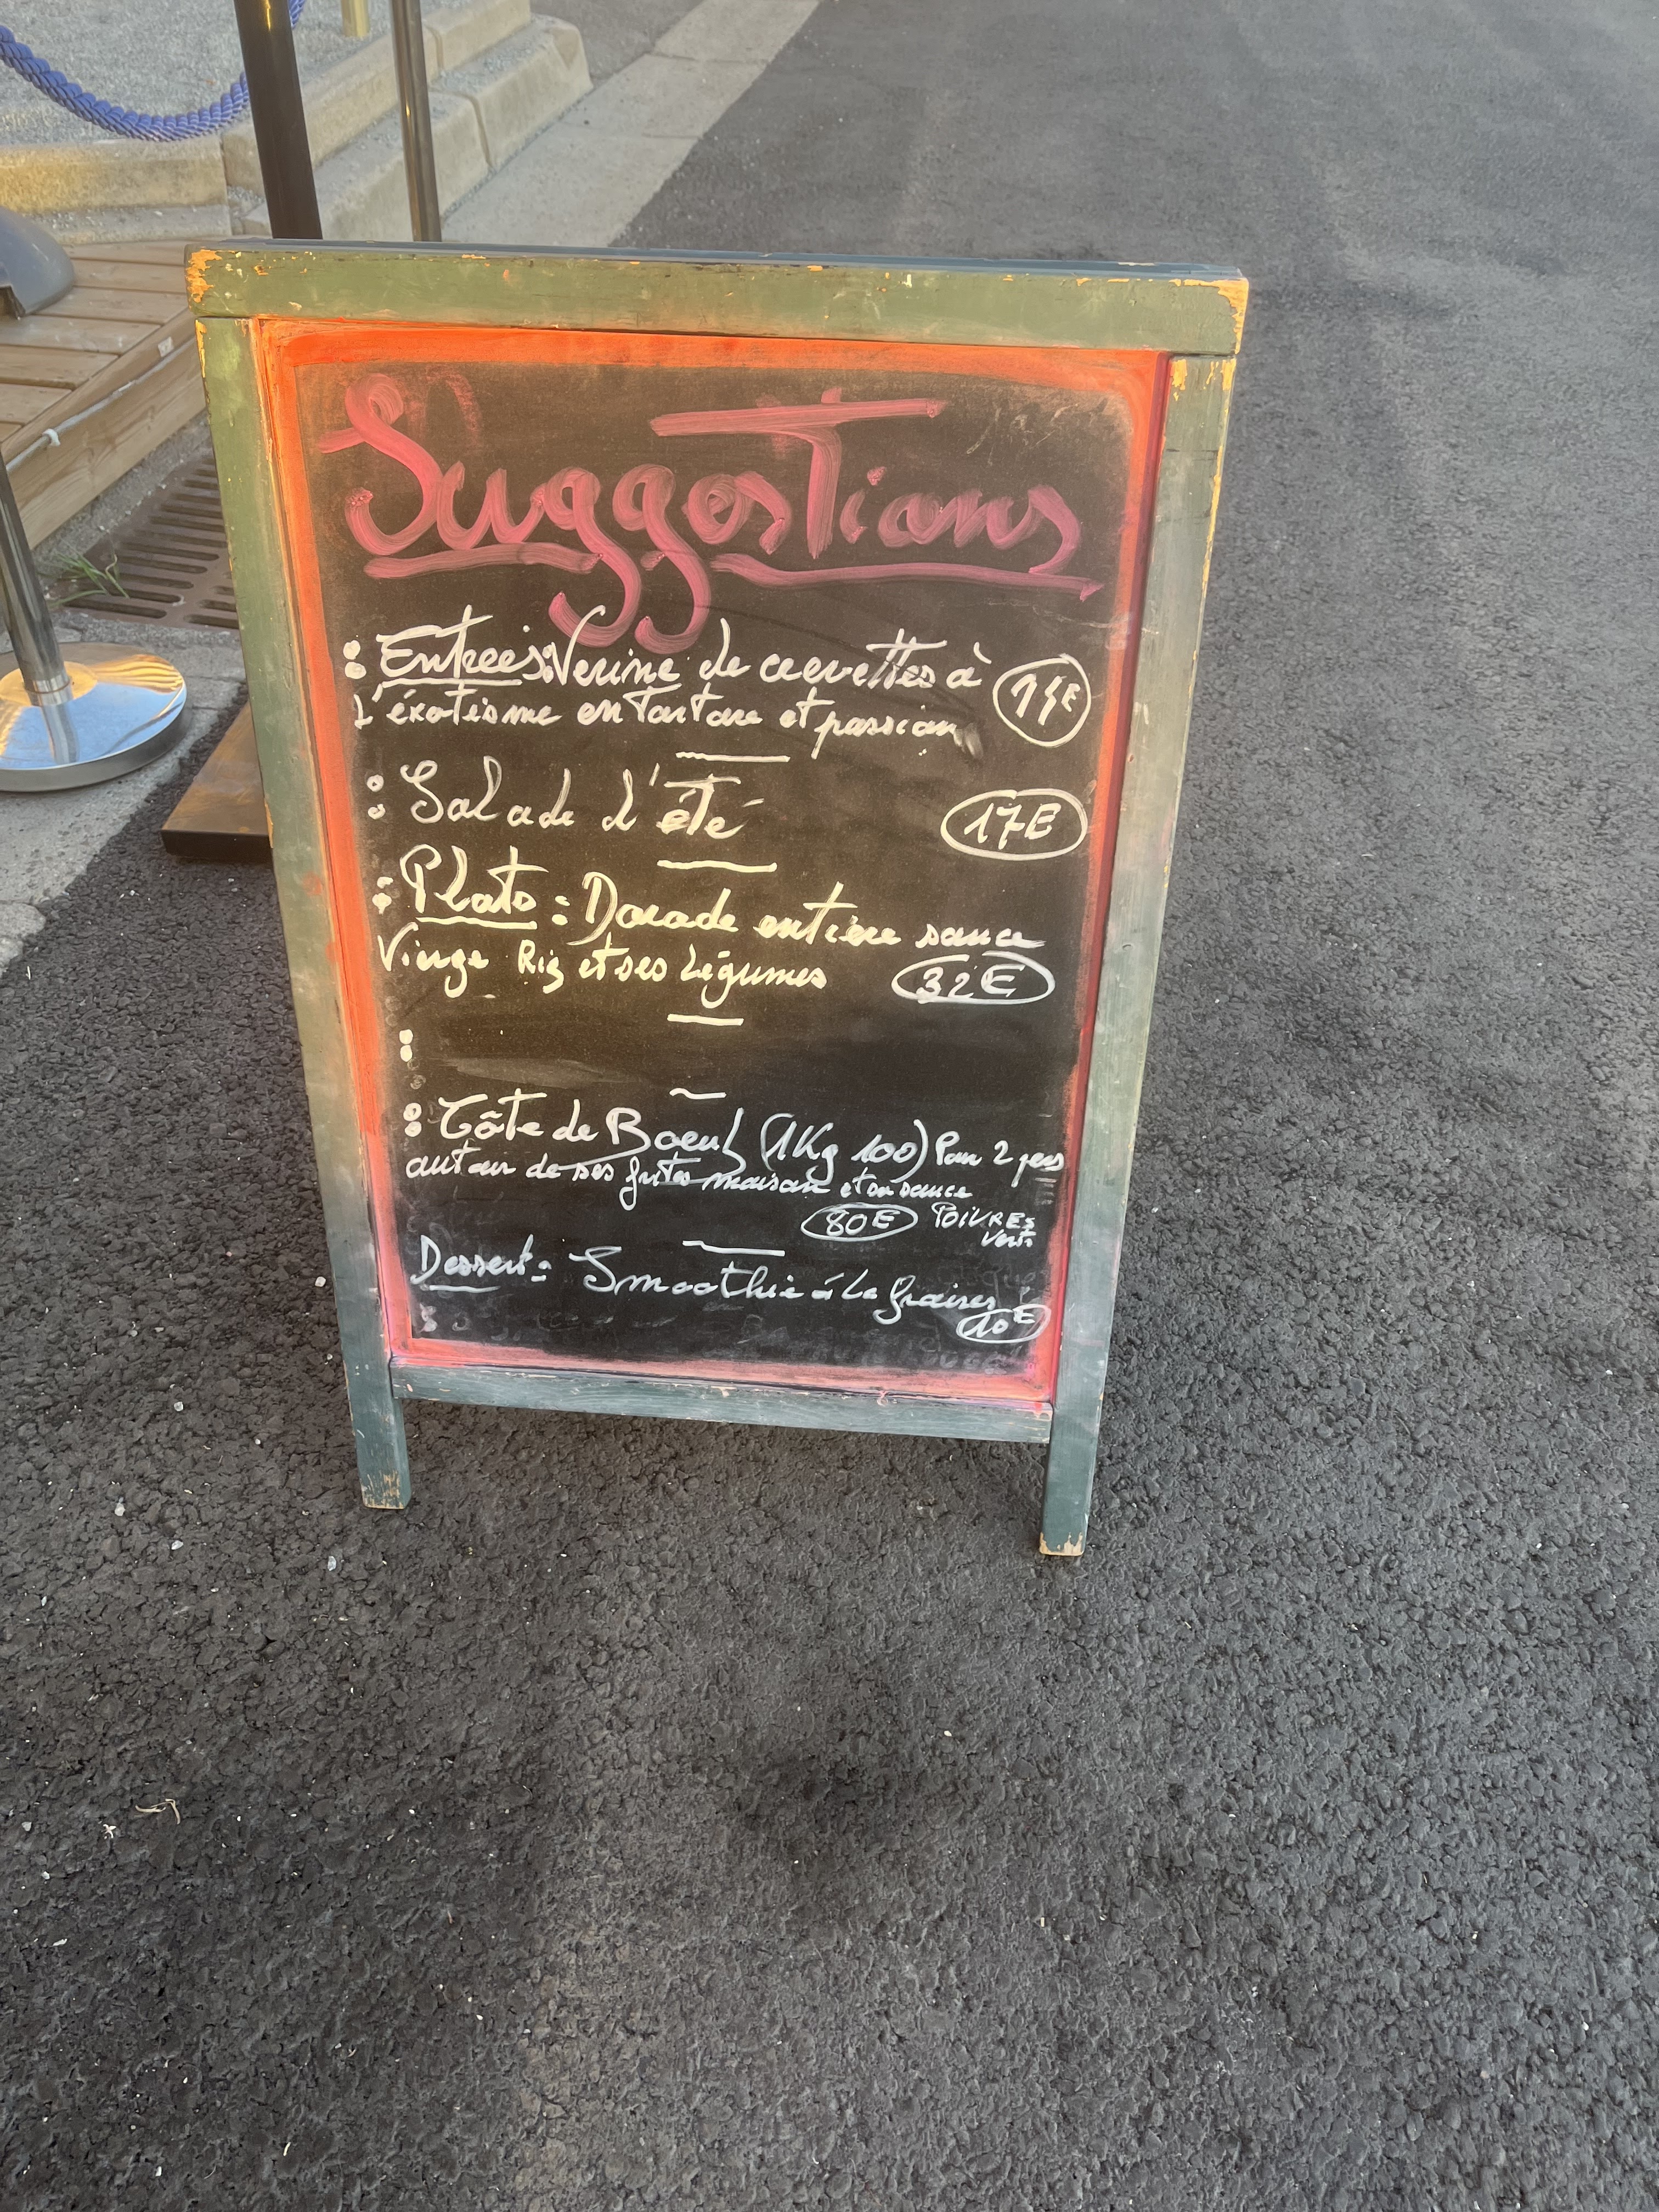 Suggestions
: Entrées: Verrine de crevettes à 14€
L'éxotisme en Tartare et passion
: Salade d'été 17E
: Plats : Dorade entière sauce
Vierge Riz et ses Légumes 32€
:
: Côte de Boeuf (1Kg 100) Pour 2 pers
autour de ses frites maison et sa sauce
80E POIVRES
verts
Dessert : Smoothie à la fraises
10E